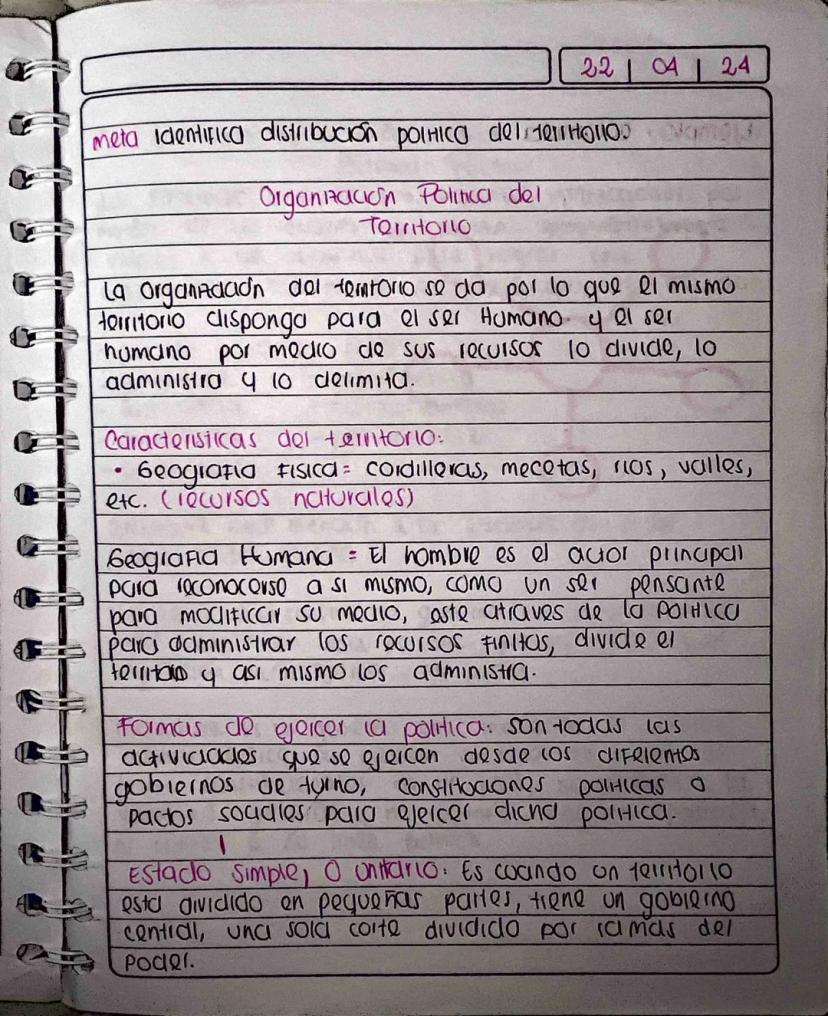 22 | 04 | 24
meta identifica distribución politica del territorio.
Organización Politica del
Territorio
La organización del territorio se da por lo que el mismo
territorio disponga para el ser Humano y el ser
humano por medio de sus recursos lo divide, lo
administra y lo delimita.
Caracteristicas del territorio:
• Geografia Fisica = cordilleras, mecetas, rios, valles,
etc. (recursos naturales)
Geografia Humana = El hombre es el actor principal
para reconocerse a si mismo, como un ser pensante
para modificar su medio, este atraves de la politica
para administrar los recursos finitos, divide el
territorio y asi mismo los administra.
Formas de ejercer la politica: son todas las
actividades que se ejercen desde los diferentes
gobiernos de turno, constituciones politicas o
pactos sociales para ejercer dicha politica.
1
Estado simple, O unitario: Es cuando un territorio
esta dividido en pequeñas partes, tiene un gobierno
central, una sola corte dividido por ramas del
poder.